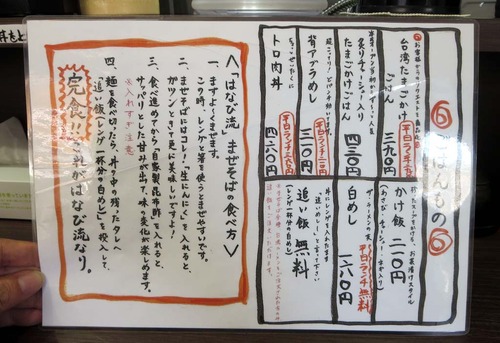 ごはんもの
お客様ドラフトランキング
台湾たまごかけごはん
三九〇円
炙りチャーシュー入りたまごかけごはん
四三〇円
背アブラめし
トロ肉丼
四二〇円
かけ飯 二一〇円
白めし
平日ランチ無料
一六〇円
丼にレンゲを入れたまま
「追いめし!」と言って下さい
追い飯 無料
(レンゲ一杯分の白めし)
〈「はなび流 まぜそばの食べ方〉
一、ますよ~くまぜます。
この時、レンゲと箸を使うとまぜやすいです。
二、まぜそばにはコレ!生にんにくを入れると、
ガツンときて更に美味しいですよ!
三、食べ進めてから自家製昆布酢を入れると、
サッパリとした甘みが出て、味の変化が楽しめます。
※入れすぎ注意
四、麺を食べ切ったら、丼の中の残ったタレへ
「追い飯(レンゲ一杯分の白めし)」を投入して、
完食!!これがはなび流なり。